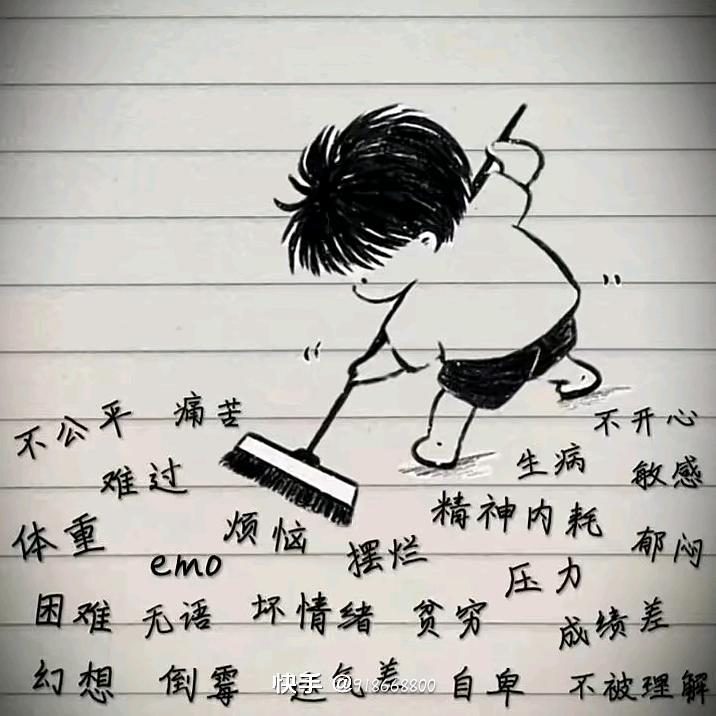 不公平 痛苦 不开心
难过 生病 敏感
体重 烦恼 精神内耗 郁闷
emo 摆烂 压力
困难 无语 坏情绪 贫穷 成绩差
幻想 倒霉 运气差 自卑 不被理解
快手 @918668800